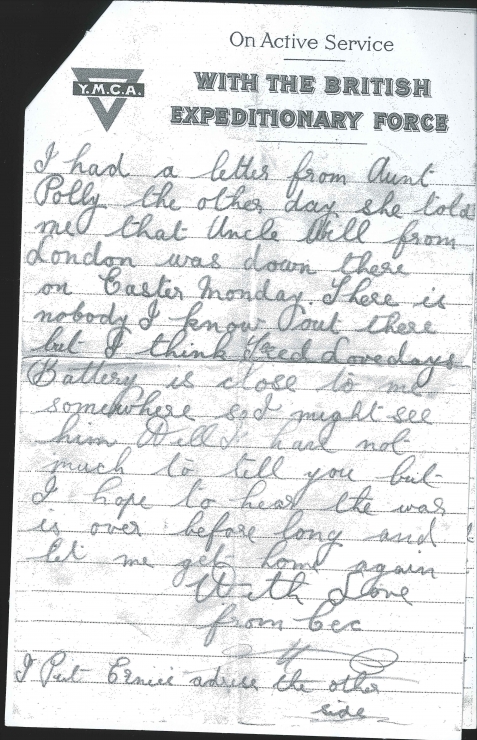 On Active Service
Y.M.C.A.
WITH THE BRITISH
EXPEDITIONARY FORCE
I had a letter from Aunt
Polly the other day she told
me that Uncle Will from
London was down there
on Easter Monday. There is
nobody I know out there
but I think Fred Lovedays
Battery is close to me
somewhere so I might see
him Well I have not
much to tell you but
I hope to hear the war
is over before long and
let me get home again
With Love
from Cec
I Put Ernies adress the other
side